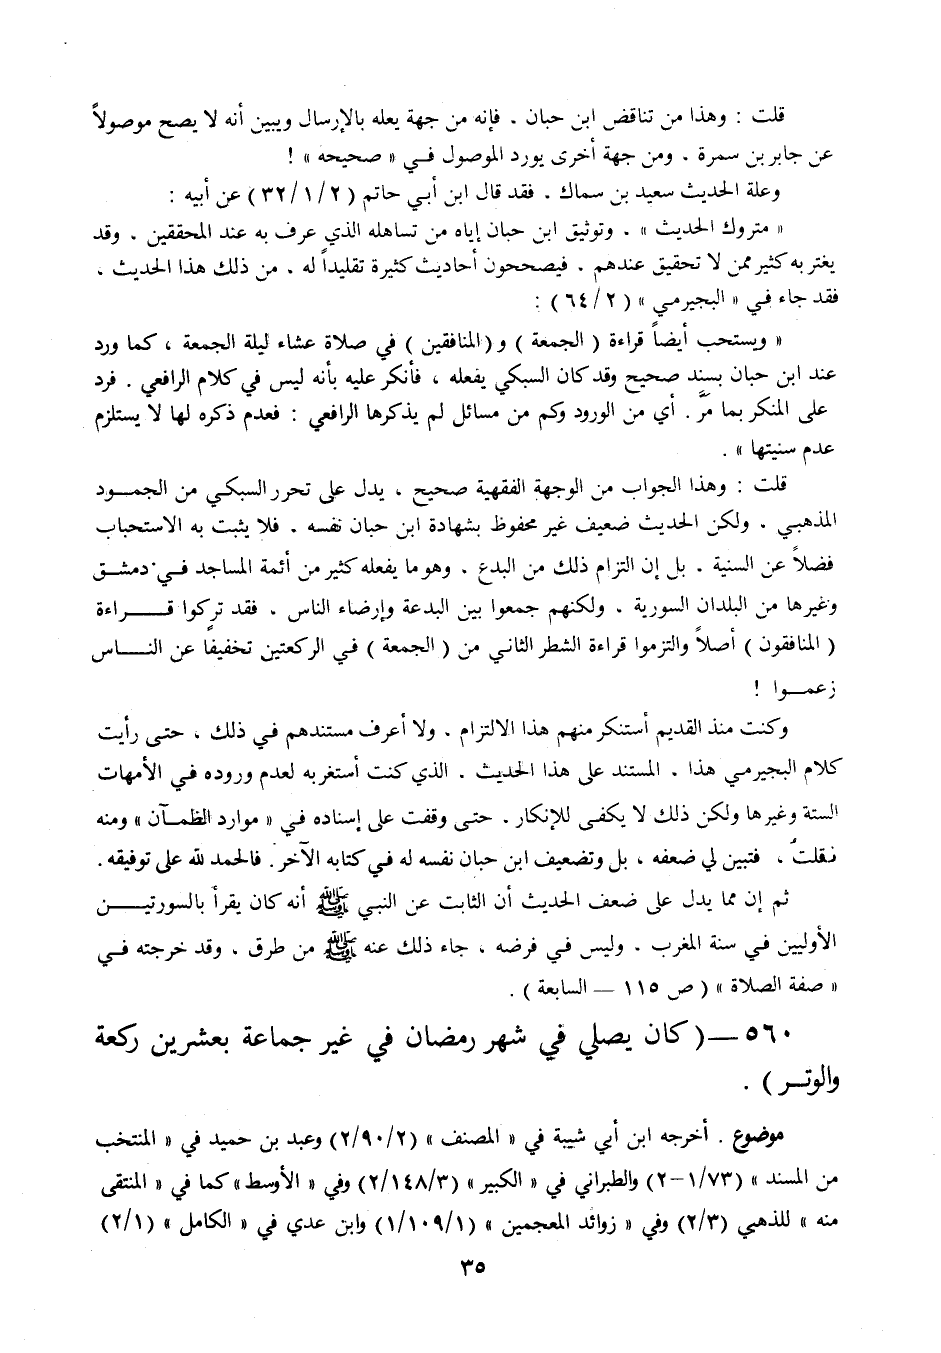 قلت : وهذا من تناقض ابن حبان . فإنه من جهة يعله بالإرسال ويبين أنه لا يصح موصولاً
عن جابر بن سمرة . ومن جهة أخرى يورد الموصول في « صحيحه » !
وعلة الحديث سعيد بن سماك . فقد قال ابن أبي حاتم ( ٢/ ١/ ٣٢ ) عن أبيه :
« متروك الحديث » . وتوثيق ابن حبان إياه من تساهله الذي عرف به عند المحققين . وقد
يغتر به كثير ممن لا تحقيق عندهم . فيصححون أحاديث كثيرة تقليداً له . من ذلك هذا الحديث ،
فقد جاء في « البجيرمي » ( ٢/ ٦٤ ) :
« ويستحب أيضاً قراءة ( الجمعة ) و( المنافقين ) في صلاة عشاء ليلة الجمعة ، كما ورد
عند ابن حبان بسند صحيح وقد كان السبكي يفعله ، فأنكر عليه بأنه ليس في كلام الرافعي . فرد
على المنكر بما مَرَّ . أي من الورود وكم من مسائل لم يذكرها الرافعي : فعدم ذكره لها لا يستلزم
عدم سنيتها » .
قلت : وهذا الجواب من الوجهة الفقهية صحيح ، يدل على تحرر السبكي من الجمـــود
المذهبي . ولكن الحديث ضعيف غير محفوظ بشهادة ابن حبان نفسه . فلا يثبت به الاستحباب
فضلاً عن السنية . بل إن التزام ذلك من البدع . وهو ما يفعله كثير من أئمة المساجد في دمشــق
وغيرها من البلدان السورية . ولكنهم جمعوا بين البدعة وإرضاء الناس . فقد تركوا قــــــراءة
( المنافقون ) أصلاً والتزموا قراءة الشطر الثاني من ( الجمعة ) في الركعتين تخفيفاً عن النـــــاس
زعمـــوا !
وكنت منذ القديم أستنكر منهم هذا الالتزام . ولا أعرف مستندهم في ذلك ، حتى رأيت
كلام البجيرمي هذا . المستند على هذا الحديث . الذي كنت أستغربه لعدم وروده في الأمهات
الستة وغيرها ولكن ذلك لا يكفى للإنكار . حتى وقفت على إسناده في « موارد الظمــآن » ومنه
نقلتُ ، فتبين لي ضعفه ، بل وتضعيف ابن حبان نفسه له في كتابه الآخر . فالحمد لله على توفيقه .
ثم إن مما يدل على ضعف الحديث أن الثابت عن النبي ﷺ أنه كان يقرأ بالسورتيــــــن
الأوليين في سنة المغرب . وليس في فرضه ، جاء ذلك عنه ﷺ من طرق . وقد خرجته في
« صفة الصلاة » ( ص ١١٥ — السابعة ) .
٥٦٠ — ( كان يصلي في شهر رمضان في غير جماعة بعشرين ركعة
والوتـــر ) .
موضوع . أخرجه ابن أبي شيبة في « المصنف » (٢/٩٠/٢) وعبد بن حميد في « المنتخب
من المسند » (٧٣/ ١-٢) والطبراني في « الكبير » (٣/ ١٤٨/ ٢) وفي « الأوسط » كما في « المنتقى
منه » للذهبي (٣/ ٢) وفي « زوائد المعجمين » (١/ ١٠٩/ ١) وابن عدي في « الكامل » (١/ ٢)
٣٥